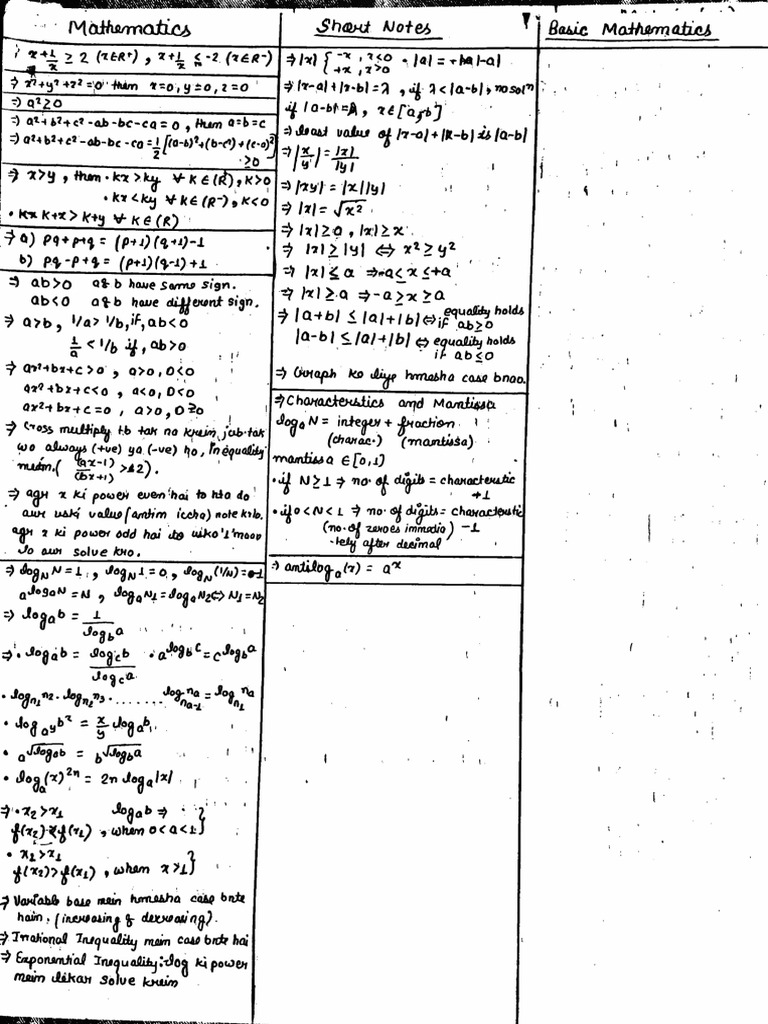 Mathematics
Short Notes
Basic Mathematics
x+1/x ≥ 2 (x∈R⁺) , x+1/x ≤ -2 (x∈R⁻)
⇒ x²+y²+z²=0 then x=0, y=0, z=0
⇒ a²≥0
⇒ a²+b²+c²-ab-bc-ca=0, then a=b=c
⇒ a²+b²+c²-ab-bc-ca=1/2[(a-b)²+(b-c)²+(c-a)²]
≥0
⇒ x>y, then • kx>ky ∀ k∈(R), k>0
• kx<ky ∀ k∈(R⁻), k<0
• k+x>k+y ∀ k∈(R)
⇒ a) pq+p+q = (p+1)(q+1)-1
b) pq-p+q = (p+1)(q-1)+1
⇒ ab>0 a&b have same sign.
ab<0 a&b have different sign.
⇒ a>b, 1/a>1/b, if, ab<0
1/a < 1/b if, ab>0
⇒ ax²+bx+c>0, a>0, D<0
ax²+bx+c<0, a<0, D<0
ax²+bx+c=0, a>0, D≥0
⇒ Cross multiply tb tak na krein jab tak
wo always (+ve) ya (-ve) ho, Inequality
mein. ((ax-1)/(bx+1) >12).
⇒ agr x ki power even hai to hta do
aur uski value (antim iccha) note krlo.
agr x ki power odd hai to usko '1' maan
lo aur solve kro.
⇒ log_N N=1, log_N 1=0, log_N(1/N)=-1
a^(log_a N)=N, log_a N1=log_a N2⇔N1=N2
⇒ log_a b = 1/log_b a
⇒ • log_a b = log_c b/log_c a • a^(log_b c)=c^(log_b a)
• log_n1 n2 · log_n2 n3 ........ log_na-1 na = log_n1 na
• log_a^y b^x = x/y log_a b
• a^√(log_a b) = b^√(log_b a)
• log_a(x)^2n = 2n log_a |x|
⇒ • x2>x1 log_a b ⇒
f(x2)<f(x1), when 0<a<1}
• x2>x1
f(x2)>f(x1), when x>1}
⇒ Variable base mein hmesha case bnte
hain. (increasing & decreasing).
⇒ Irrational Inequality mein case bnte hai
⇒ Exponential Inequality: log ki power
mein likar solve krein
⇒ |x| { -x, x<0 • |a|=+|-a|
+x, x>0
⇒ |x-a|+|x-b|=λ, if λ<|a-b|, no solⁿ
if |a-b|=λ, x∈[a,b]
⇒ least value of |x-a|+|x-b| is |a-b|
⇒ |x/y|=|x|/|y|
⇒ |xy|=|x||y|
⇒ |x|=√x²
⇒ |x|≥0, |x|≥x
⇒ |x|≥|y| ⇔ x²≥y²
⇒ |x|≤a ⇒-a≤x≤+a
⇒ |x|≥a ⇒-a≥x≥a
⇒ |a+b|≤|a|+|b|⇔ equality holds
if ab≥0
|a-b|≤|a|+|b| ⇔ equality holds
if ab≤0
⇒ Graph ke liye hmesha case bnao.
⇒ Characterstics and Mantissa
log_a N = integer + fraction
(charac.) (mantissa)
mantissa ∈[0,1)
• if N≥1 ⇒ no. of digits = characteristic
+1
• if 0<N<1 ⇒ no. of digits = characteristic
(no. of zeroes immedia) -1
-tely after decimal
⇒ antilog_a(x) = a^x